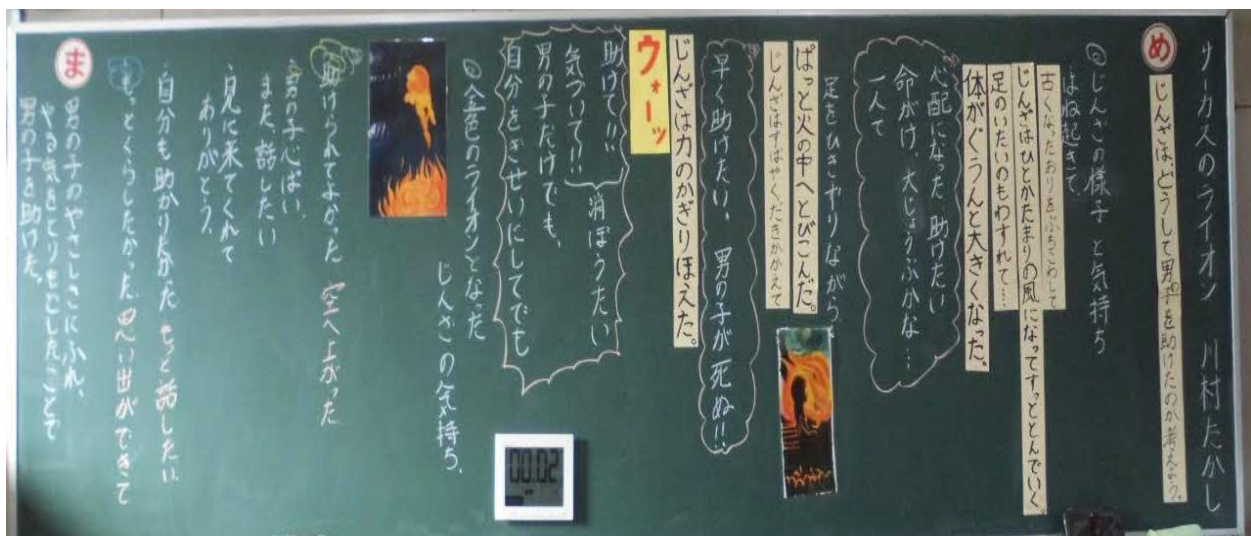 サーカスのライオン　川村たかし
め
じんざは、どうして男の子を助けたのか考えよう。
◎じんざの様子と気持ち
はね起きて
古くなったおりをぶちこわして
じんざはひとかたまりの風になってすっとんでいく。
足のいたいのもわすれて…
体がぐうんと大きくなった。
心配になった 助けたい
命がけ、大じょうぶかな…
一人で
足をひきずりながら
ぱっと火の中へとびこんだ。
じんざはすばやくだきかかえて
早く助けたい。 男の子が死ぬ!!
じんざは力のかぎりほえた。
ウォーッ
助けて!!
気づいて!! 消ぼうたい
男の子だけでも、
自分をぎせいにしてでも
◎金色のライオンとなった
じんざの気持ち、
助けられてよかった 空へ上がった
・男の子心ぱい、
また、話したい
・見に来てくれて
ありがとう、
・自分も助かりたかった もっと話したい
もっとくらしたかった、思い出ができて
ま
男の子のやさしさにふれ、
やる気をとりもどしたことで
男の子を助けた。
00:02